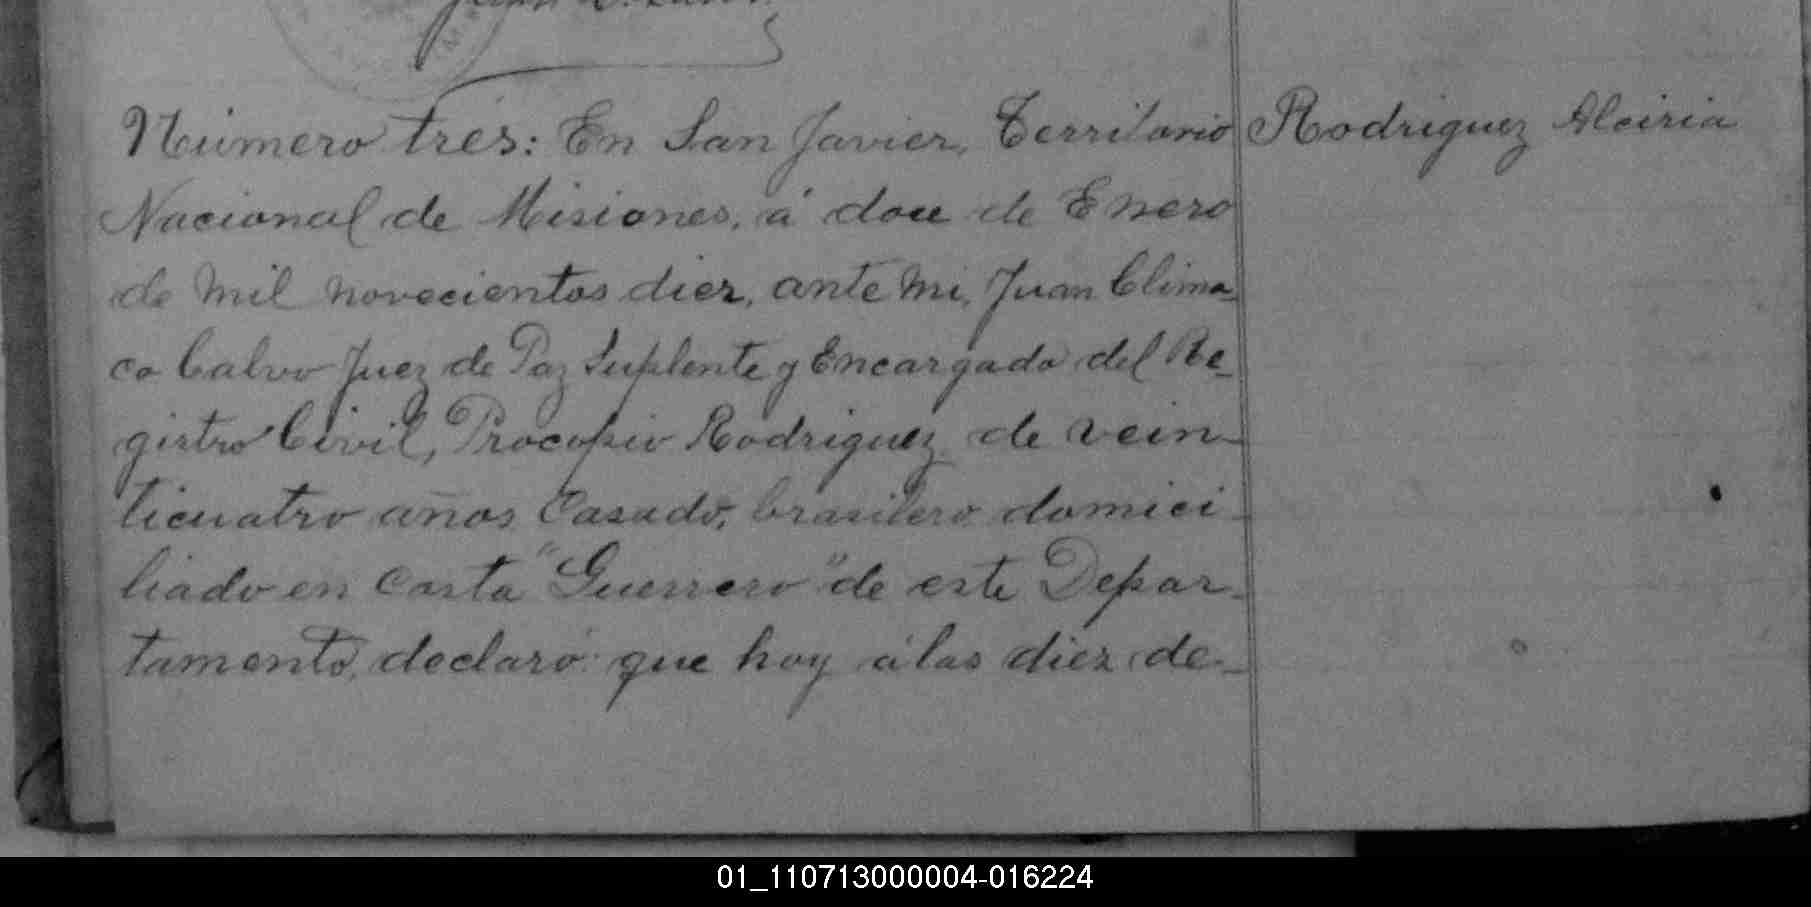 Número tres: En San Javier, Territorio
Rodriguez Alciria
Nacional de Misiones, á doce de Enero
de mil novecientos diez, ante mi, Juan Clima-
co Calvo Juez de Paz Suplente y Encargado del Re-
gistro Civil, Procopio Rodriguez de vein-
ticuatro años, Casado, brasilero domici-
liado en Costa "Guerrero" de este Depar-
tamento, declaró: que hoy á las diez de-
01_110713000004-016224